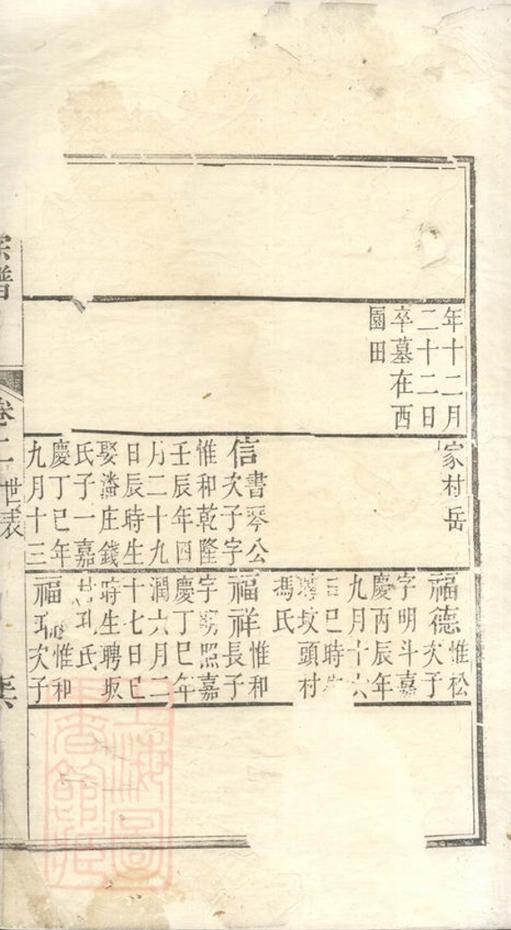 年十二月
二十二日
卒墓在西
園田
家村岳
信書琴公
次子字
惟和乾隆
壬辰年四
月二十九
日辰時生
娶潘庄錢
氏子一嘉
慶丁巳年
九月十三
福德惟松
次子
字明斗嘉
慶丙辰年
九月十六
日巳時生
坟頭村
馮氏
福祥惟和
長子
字照嘉
慶丁巳年
潤六月二
十七日巳
時生聘坂
氏
福惟和
次子
宗譜
卷二
世表
上海圖
書館藏